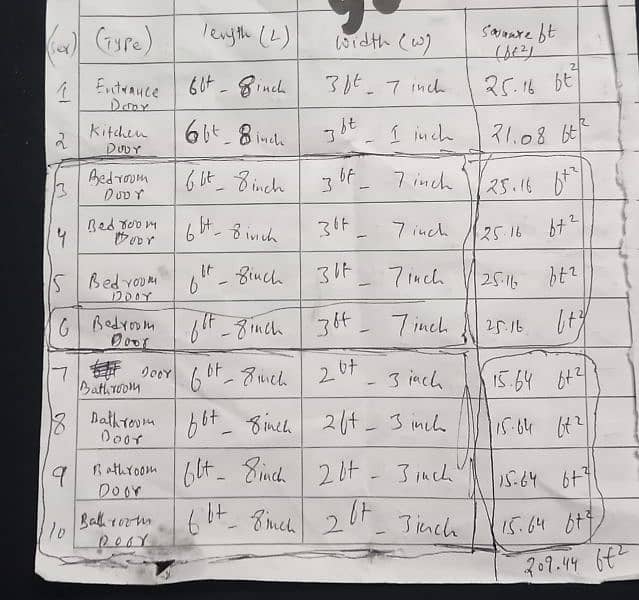 (ser) (Type) length (L) width (w) Square ft (ft2)
1 Entrance Door 6ft - 8 inch 3ft - 7 inch 25.16 ft²
2 Kitchen Door 6ft - 8 inch 3ft - 1 inch 21.08 ft²
3 Bedroom Door 6ft - 8inch 3ft - 7 inch 25.16 ft²
4 Bedroom Door 6ft - 8 inch 3ft - 7 inch 25.16 ft²
5 Bedroom Door 6ft - 8inch 3ft - 7 inch 25.16 ft²
6 Bedroom Door 6ft - 8inch 3ft - 7 inch 25.16 ft²
7 Door Bathroom 6ft - 8inch 2ft - 3 inch 15.64 ft²
8 Bathroom Door 6ft - 8inch 2ft - 3 inch 15.64 ft²
9 Bathroom Door 6ft - 8inch 2ft - 3 inch 15.64 ft²
10 Bathroom Door 6ft - 8inch 2ft - 3 inch 15.64 ft²
209.44 ft²